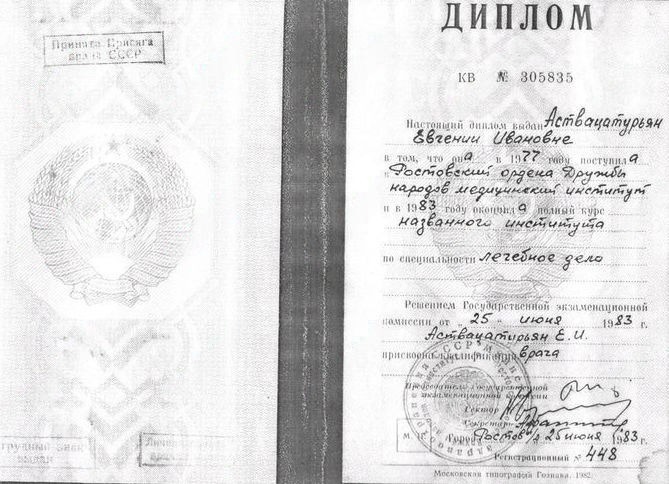 Принята Присяга
врача СССР
нагрудный знак
выдан
ДИПЛОМ
КВ № 305835
Настоящий диплом выдан Аствацатурьян
Евгении Ивановне
в том, что она в 1977 году поступила
в Ростовский ордена Дружбы
народов медицинский институт
и в 1983 году окончила полный курс
названного института
по специальности лечебное дело
Решением Государственной экзаменационной
комиссии от „25“ июня 1983 г.
Аствацатурьян Е.И.
присвоена квалификация врача
Председатель Государственной
экзаменационной комиссии
Ректор
Секретарь
М. П. Город Ростов н/Д 25 июня 1983 г.
Регистрационный № 448
Московская типография Гознака. 1982.